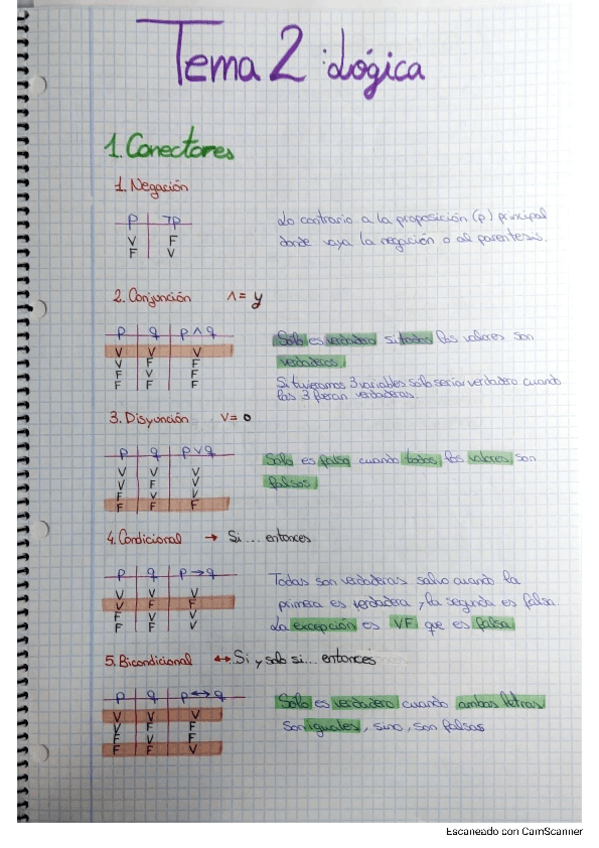 Tema 2: Lógica
1. Conectores
1. Negación
p ¬p
V F
F V
Lo contrario a la proposición (p) principal
donde vaya la negación o al parentesis.
2. Conjunción ∧ = y
p q p∧q
V V V
V F F
F V F
F F F
Sólo es verdadero si todos los valores son
verdaderos.
Si tuvieramos 3 variables solo seria verdadero cuando
las 3 fueran verdaderas.
3. Disyunción V = o
p q p∨q
V V V
V F V
F V V
F F F
Solo es falsa cuando todos los valores son
falsos.
4. Condicional → Si ... entonces
p q p→q
V V V
V F F
F V V
F F V
Todas son verdaderas salvo cuando la
primera es verdadera y la segunda es falsa.
La excepción es VF que es falsa
5. Bicondicional ↔ Si y solo si... entonces
p q p↔q
V V V
V F F
F V F
F F V
Solo es verdadero cuando ambas letras
son iguales, sino, son falsas
Escaneado con CamScanner